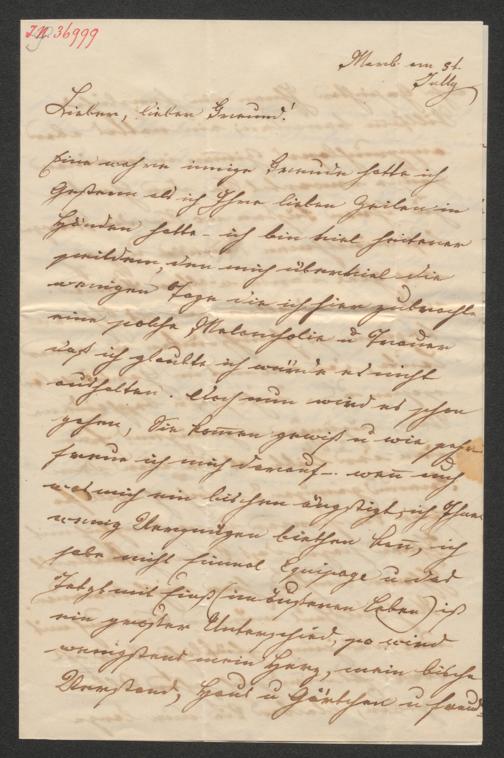 I.N. 36999
Marb. am 31.
July
Lieber, lieber Freund!
Eine wahre innige Freude hatte ich
gestern als ich Ihre lieben Zeilen in
Händen hatte – ich bin viel heiterer
seitdem, den mich überfiel die
wenigen Tage die ich hier zubrachte
eine solche Melancholie u Trauer
daß ich glaubte ich würde es nicht
aushalten. Doch nun wird es schon
gehen, Sie komen gewiß u wie sehr
freue ich mich darauf – wen auch
was mich ein bischen ängstigt, ich Ihnen
wenig Vergnügen biethen kan, ich
habe nicht Einmal Equipage u das
Jetzt mit Einst (im äußeren Leben) ist
ein großer Unterschied, so wird
wenigstens mein Herz, mein bische
Verstand, Haus u Gärtchen u freud-